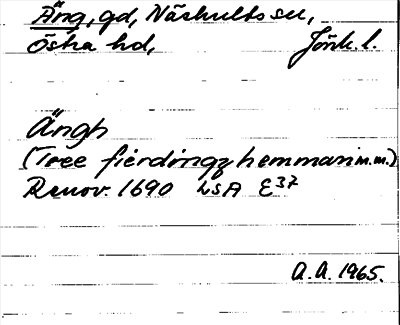 Äng, gd, Näshults sn,
Östra hd, Jönk. l.
Ängh
(Tree fierdingz hemman m.m.)
Renov. 1690 LSA E37
A.A. 1965.